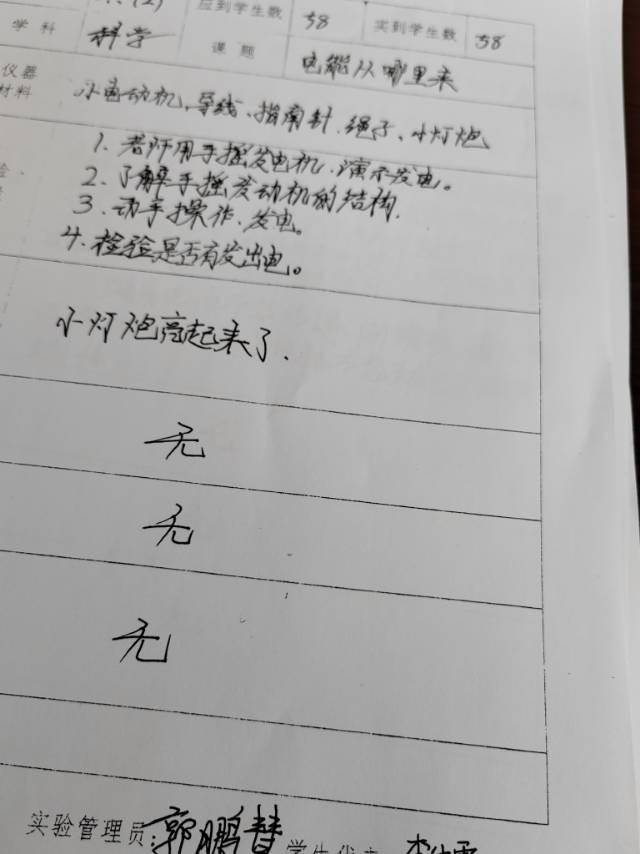 (2) 应到学生数 38 实到学生数 38
学科 科学 课题 电能从哪里来
仪器
材料
小电动机,导线、指南针、绳子、小灯炮
1. 老师用手摇发电机,演示发电。
2. 了解手摇发动机的结构.
3. 动手操作、发电。
4. 检验是否有发出电。
小灯炮亮起来了.
无
无
无
实验管理员: 郭鹏慧